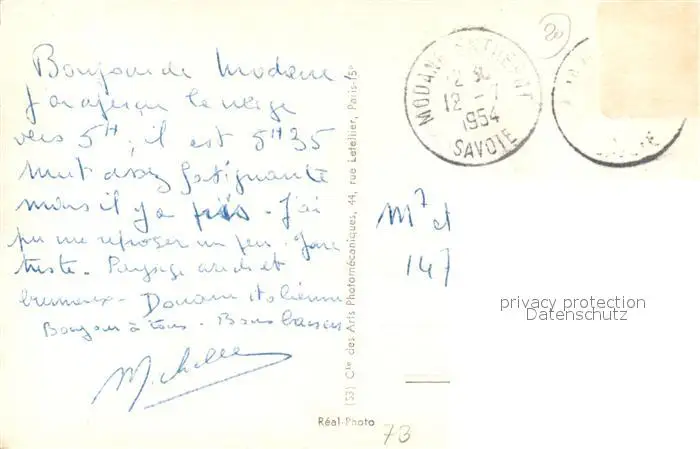 Bonjour de Modane
J'ai aperçu la neige
vers 5H, il est 5H35
nuit assez fatiguante
mais il y a pis. J'ai
pu me reposer un peu. Gare
triste. Paysage aride et
brumeux. Douane italienne
Bonjour à tous. Bons baisers
Michelle
(53) Cie des Arts Photomécaniques, 44, rue Letellier, Paris-15e
Réal-Photo
73
20
MODANE
12 - 7
1954
SAVOIE
M? et
147
privacy protection
Datenschutz